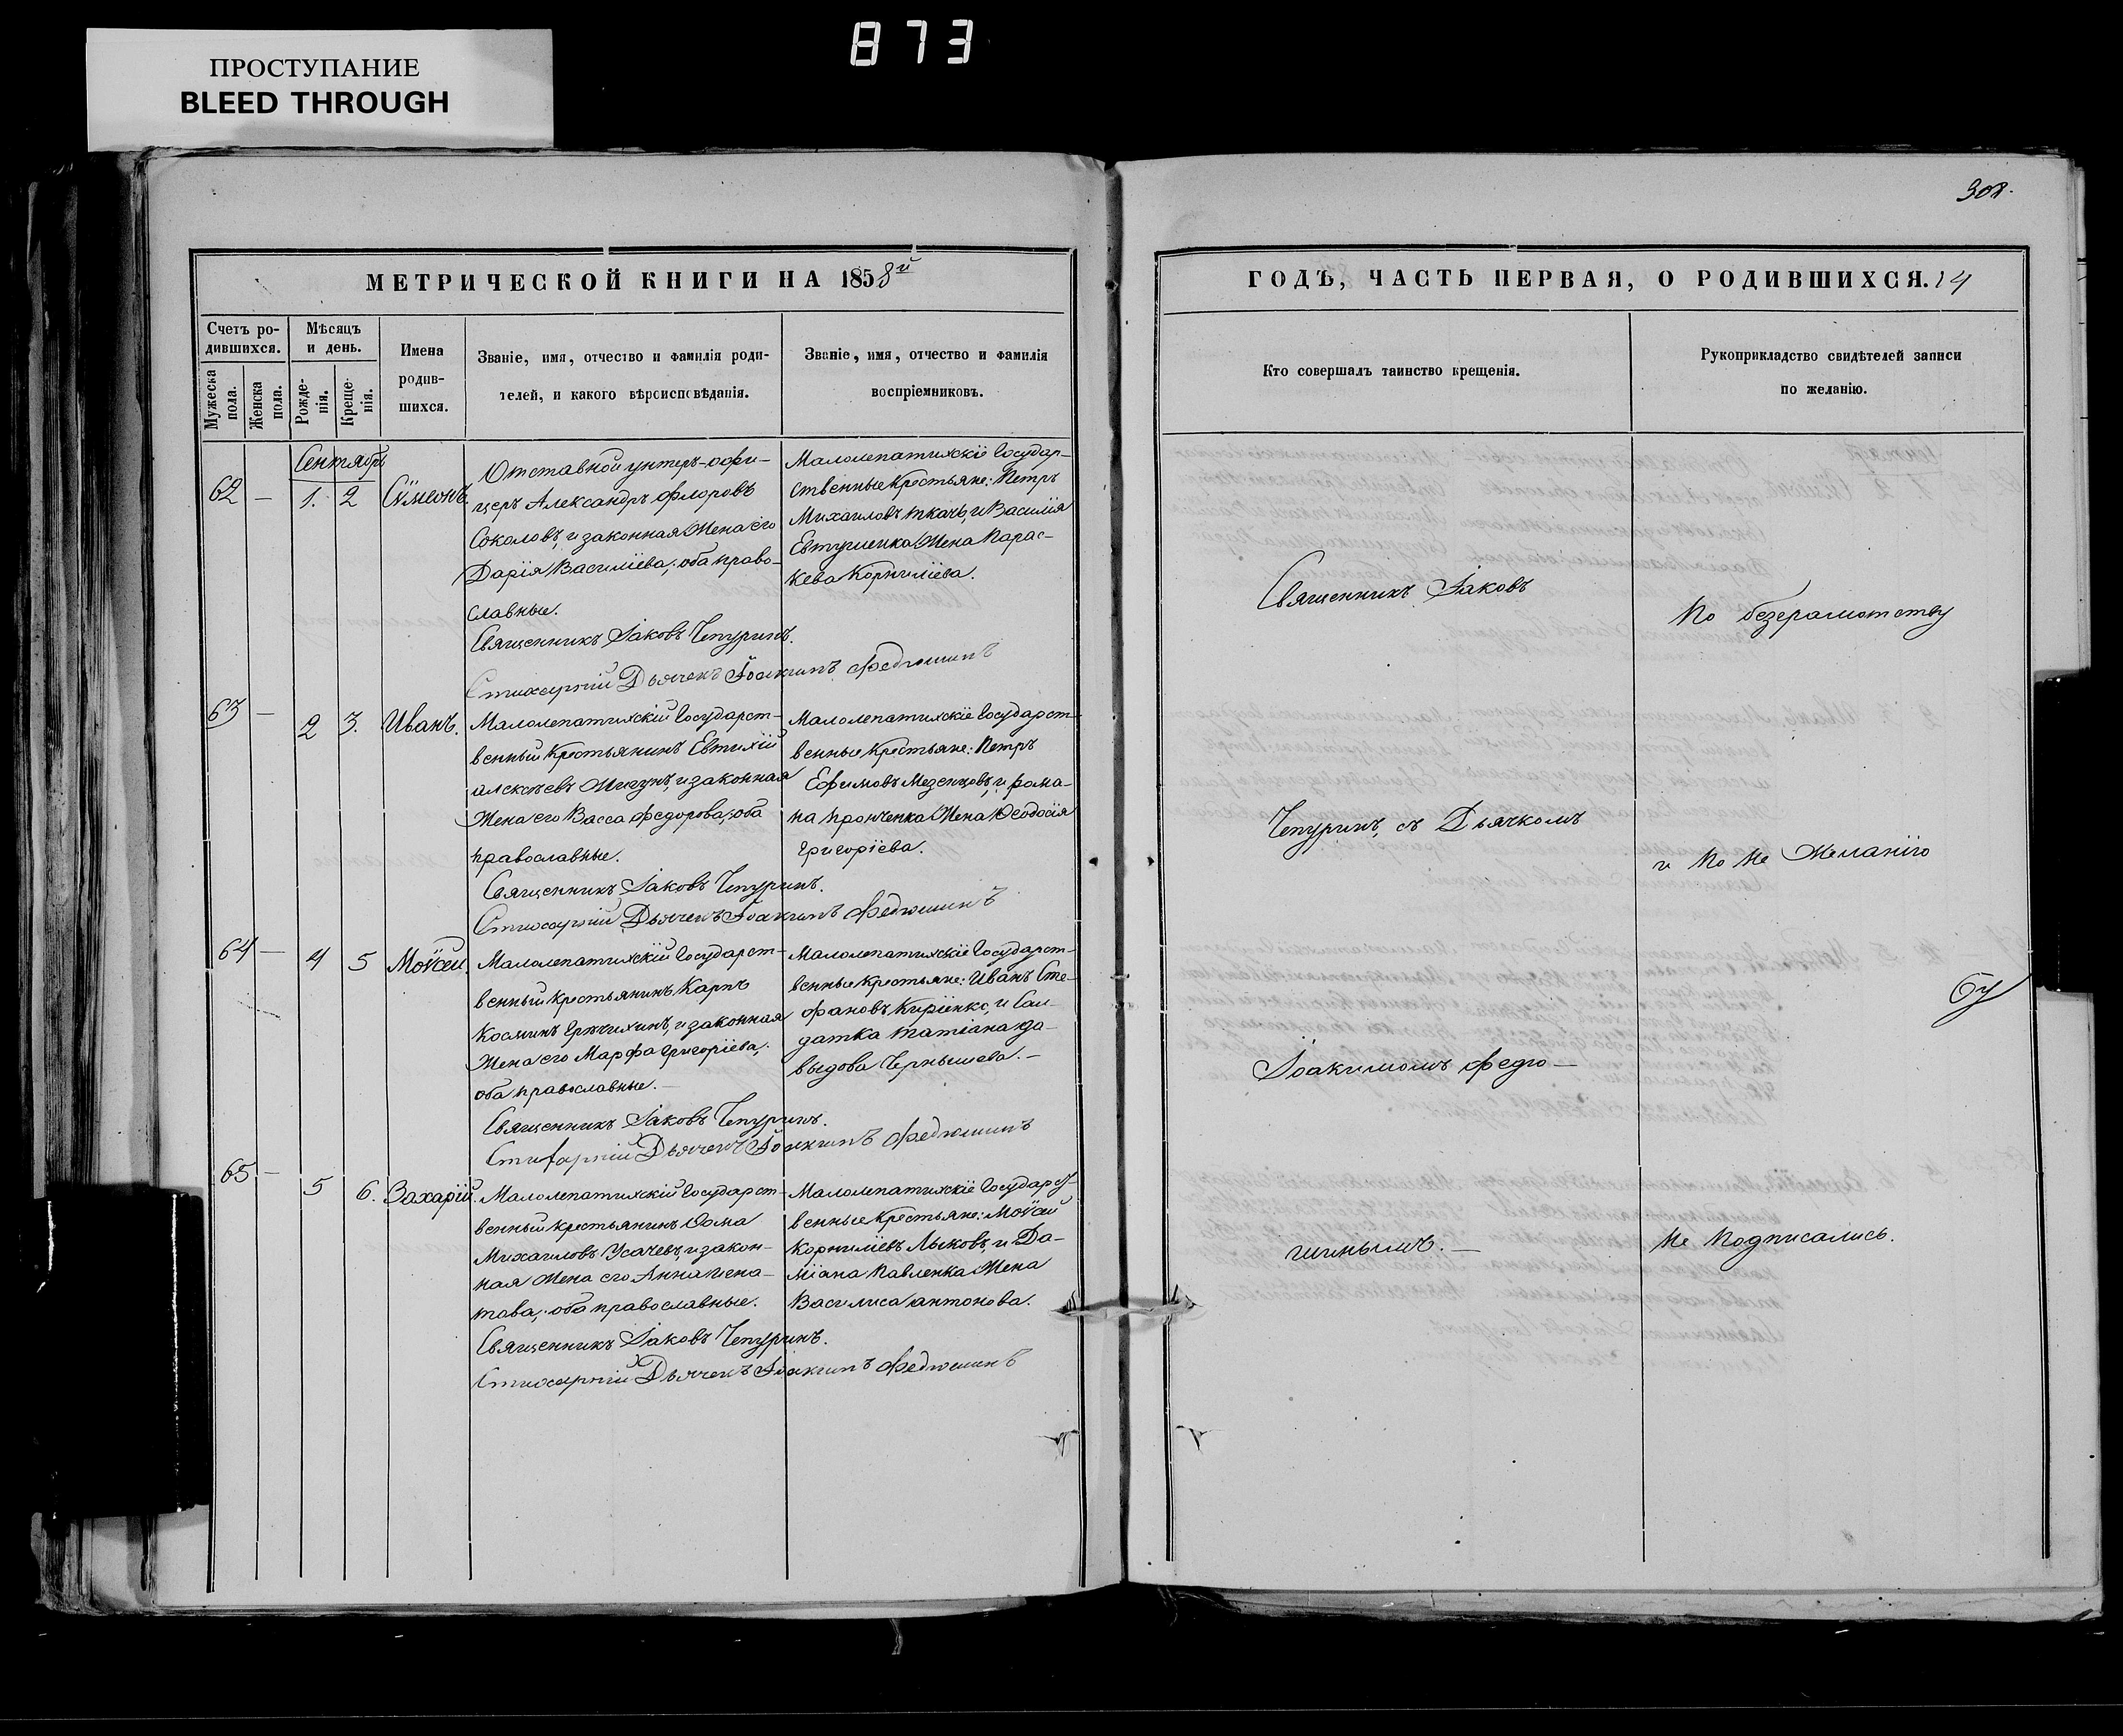 873
ПРОСТУПАНИЕ
BLEED THROUGH
308.
МЕТРИЧЕСКОЙ КНИГИ НА 1858й
ГОДЪ, ЧАСТЬ ПЕРВАЯ, О РОДИВШИХСЯ. 14
Счетъ ро-
дившихся.
Мужеска
пола.
Женска
пола.
Мѣсяцъ
и день.
Рожде-
нія.
Креще-
нія.
Имена
родив-
шихся.
Званіе, имя, отчество и фамилія роди-
телей, и какого вѣроисповѣданія.
Званіе, имя, отчество и фамилія
воспріемниковъ.
Кто совершалъ таинство крещенія.
Рукоприкладство свидѣтелей записи
по желанію.
Сентябрь
62 — 1. 2 Сѵмеонъ.
Отставной унтеръ-офи-
церъ Александръ Флоровъ
Соколовъ, и законная Жена его
Дарія Василіева; оба право-
славные.
Священникъ Іаковъ Чепуринъ.
Стихарный Дьячекъ Іоакимъ Федюшинъ
Малолепатихскіе Государ-
ственные Крестьяне: Петръ
Михаиловъ Ткачь, и Василія
Евтушенка Жена Парас-
кева Корнилiева.
63 — 2 3. Иванъ.
Малолепатихскій Государст-
венный Крестьянинъ Евтихій
Алексѣевъ Мигунъ, и законная
Жена его Васса Федорова; оба
православные.
Священникъ Іаковъ Чепуринъ.
Стихарный Дьячекъ Іоакимъ Федюшинъ
Малолепатихскіе Государст-
венные Крестьяне: Петръ
Ефимовъ Мезенцовъ, и Рома-
на Пронченка Жена Ѳеодосія
Григоріева.
64 — 4 5 Моѵсей.
Малолепатихскій Государст-
венный крестьянинъ Карпъ
Косминъ, и законная
Жена его Марфа Григоріева;
оба православные. —
Священникъ Іаковъ Чепуринъ.
Стихарный Дьячекъ Іоакимъ Федюшинъ
Малолепатихскіе Государст-
венные крестьяне: Иванъ Сте-
фановъ Киріенко, и Сол-
датка Татіана Да-
выдова Чернышева. —
65 — 5 6. Захарій.
Малолепатихскій Государст-
венный крестьянинъ Ѳома
Михаиловъ Усачевъ, и закон-
ная Жена его Анна Игна-
това; оба православные.
Священникъ Іаковъ Чепуринъ.
Стихарный Дьячекъ Іоакимъ Федюшинъ
Малолепатихскіе Государст-
венные Крестьяне: Моѵсей
Корниліевъ Лыковъ, и Да-
міана Павленка Жена
Василиса Антонова.
Священникъ Іаковъ
Чепуринъ, съ Дьячкомъ
Іоакимомъ Федю—
шинымъ. —
По безграмотству
и по не Желанію
Не Подписались.